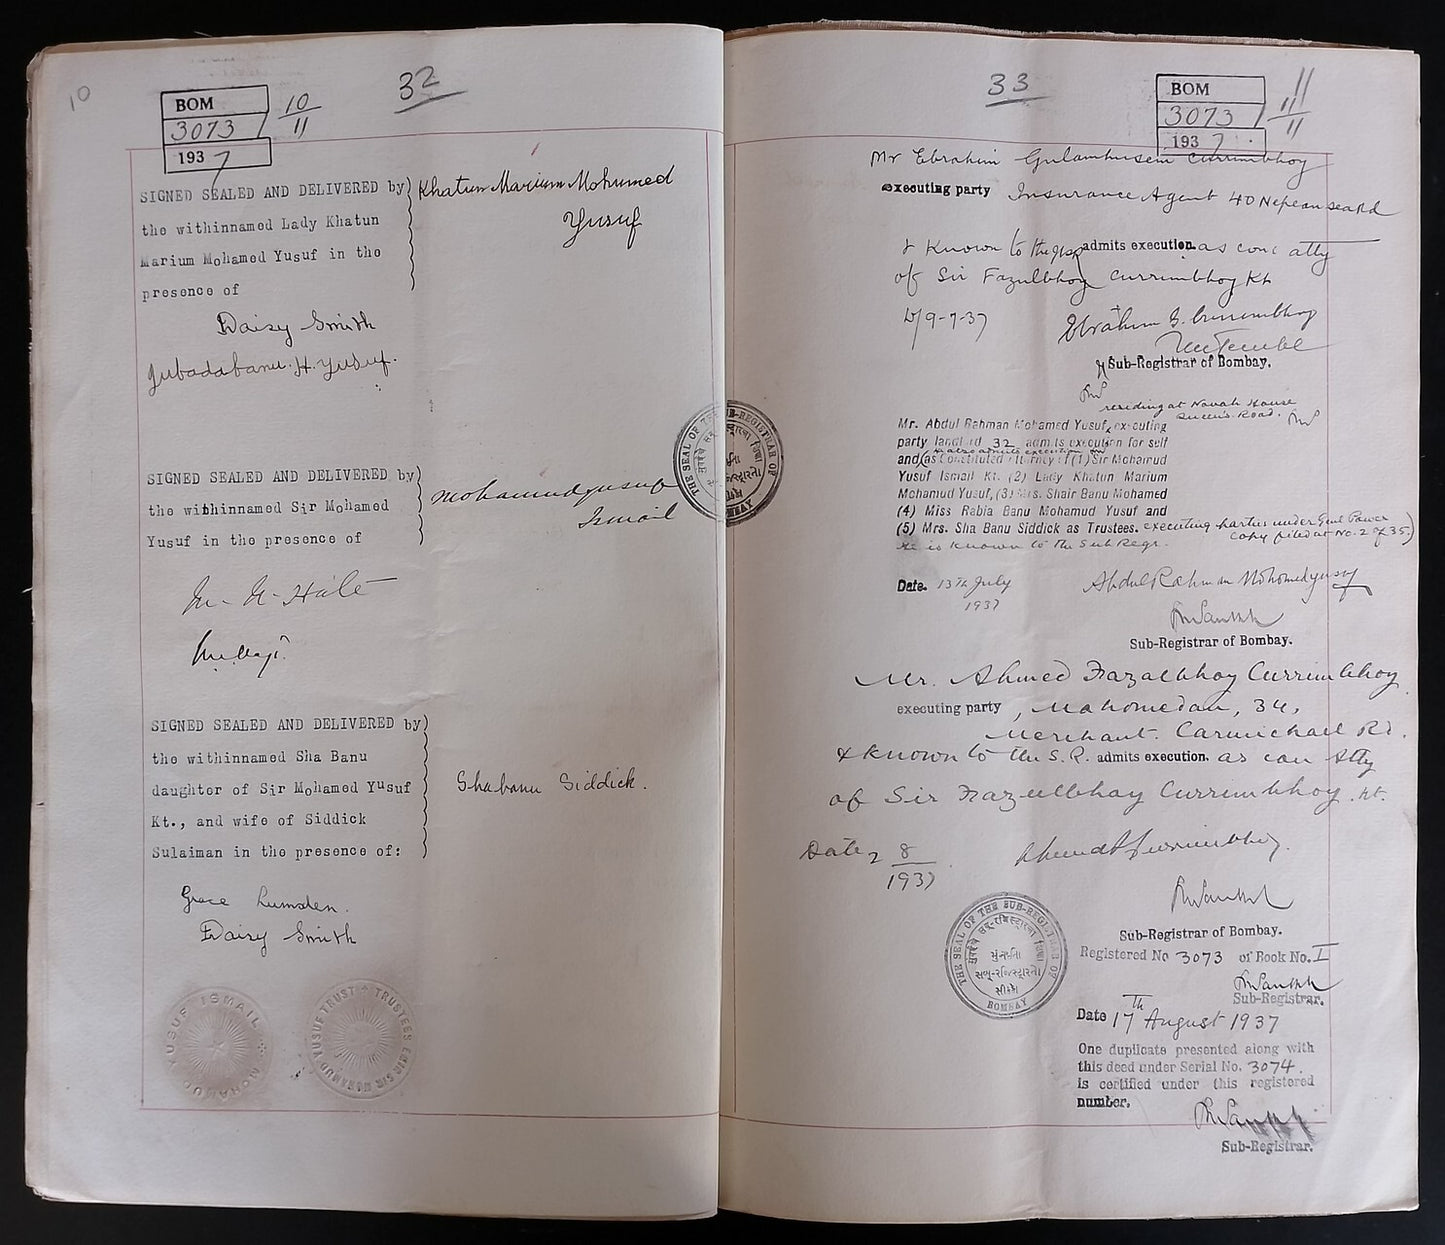 10
BOM
3073
193 7
10
11
32
SIGNED SEALED AND DELIVERED by
the withinnamed Lady Khatun
Marium Mohamed Yusuf in the
presence of
Khatun Marium Mohumed
Yusuf
Daisy Smith
Jubadabanu. H. Yusuf.
SIGNED SEALED AND DELIVERED by
the withinnamed Sir Mohamed
Yusuf in the presence of
Mohamudyusuf
Ismail
SIGNED SEALED AND DELIVERED by
the withinnamed Sha Banu
daughter of Sir Mohamed Yusuf
Kt., and wife of Siddick
Sulaiman in the presence of:
Shabanu Siddick.
Grace Lumsden.
Daisy Smith
MOHAMUD YUSUF ISMAIL
YUSUF TRUST TRUSTEES SIR MOHAMUD
THE SEAL OF THE SUB-REGISTRAR OF
BOMBAY
33
BOM
3073
193 7
11
11
11
Mr Ebrahim Gulamhusein Currimbhoy
executing party Insurance Agent 40 Nepean sea Rd
& Known to the admits execution as atty
of Sir Fazulbhoy Currimbhoy Kt
D/9-7-37
Ebrahim G. Currimbhoy
Sub-Registrar of Bombay.
residing at House
Queen's Road.
Mr. Abdul Rahman Mohamed Yusuf, executing
party 32 admits execution for self
and as Constituted Attorney of (1) Sir Mohamud
Yusuf Ismail Kt. (2) Lady Khatun Marium
Mohamud Yusuf, (3) Mrs. Shair Banu Mohamed
(4) Miss Rabia Banu Mohamud Yusuf and
(5) Mrs. Sha Banu Siddick as Trustees. executing parties under Genl Power
copy filed at No. 2 of 35.)
He is known to the Sub Regr.
Date. 13th July
1937
Abdul Rahman Mohomedyusuf
Sub-Registrar of Bombay.
Mr. Ahmed Fazulbhoy Currimbhoy
executing party, Mahomedan, 34,
Merchant. Carmichael Rd.
& known to the S.R. admits execution. as con Atty
of Sir Fazulbhoy Currimbhoy. Kt.
Date 2 8
1937
Sub-Registrar of Bombay.
THE SEAL OF THE SUB-REGISTRAR OF
BOMBAY
Registered No 3073 of Book No. I
Sub-Registrar.
Date 17th August 1937
One duplicate presented along with
this deed under Serial No. 3074.
is certified under this registered
number.
Sub-Registrar.